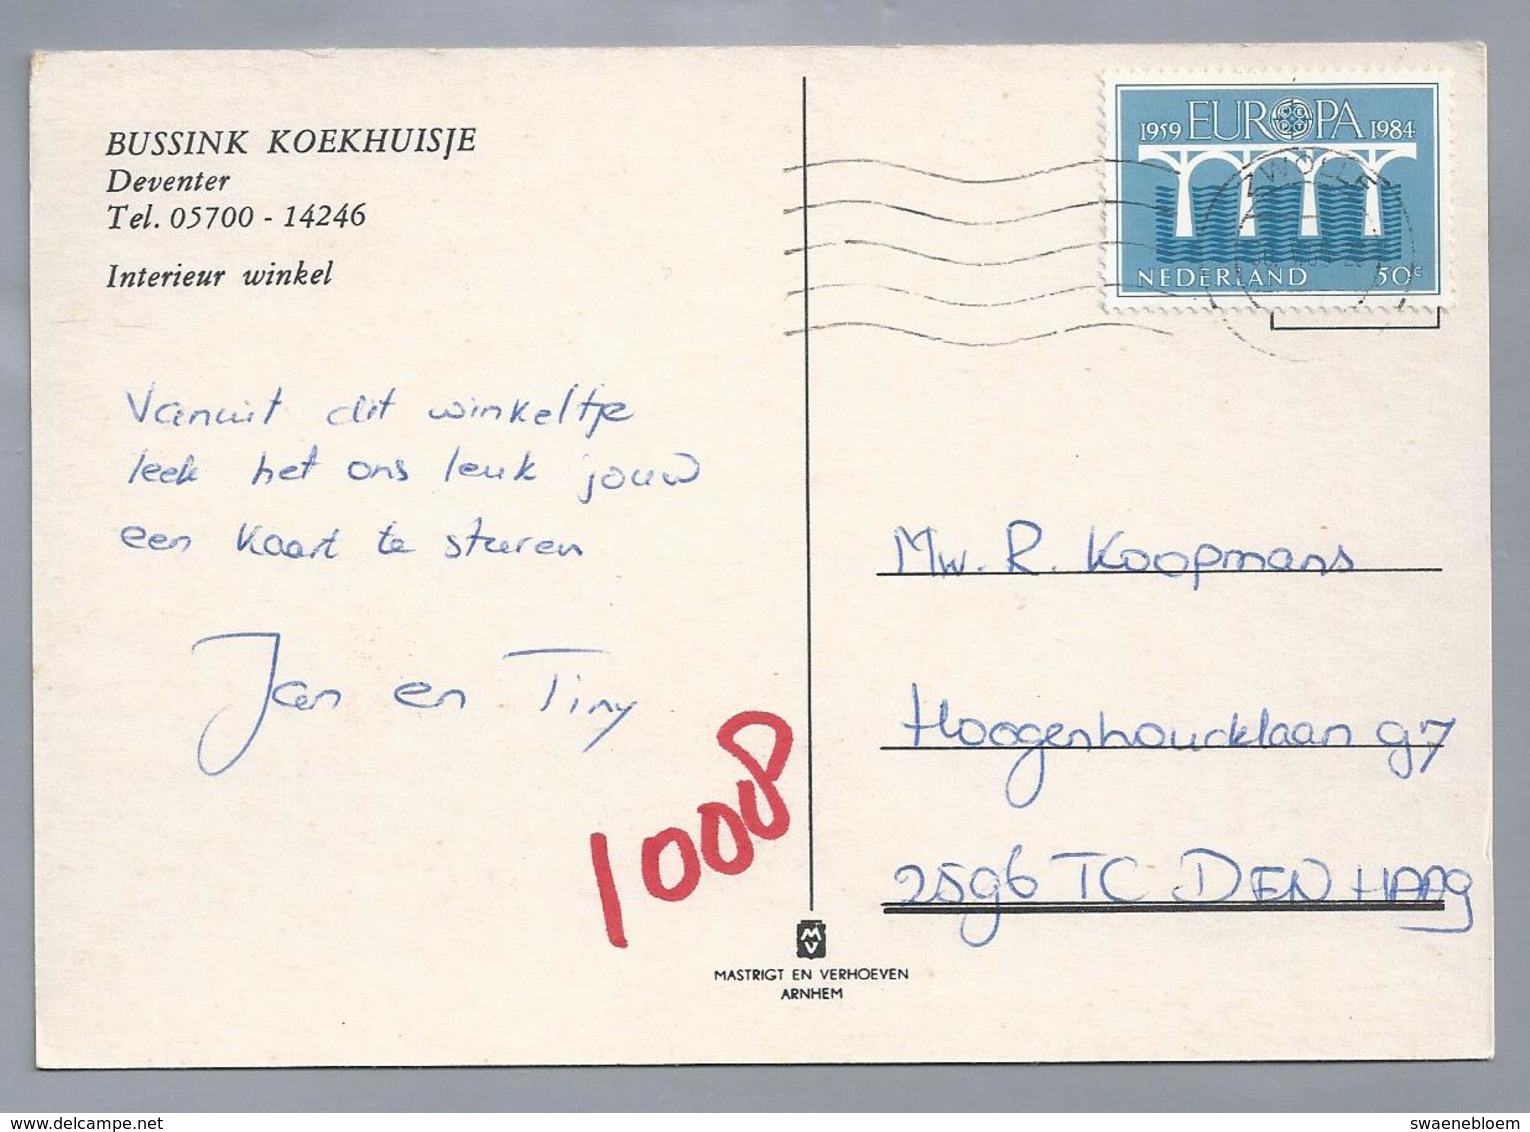 BUSSINK KOEKHUISJE
Deventer
Tel. 05700 - 14246
Interieur winkel
1959 EUROPA 1984
NEDERLAND 50c
ZWOLLE
Vanuit dit winkeltje
leek het ons leuk jouw
een kaart te sturen
Jan en Tiny
1008
Mw. R. Koopmans
Hoogenhoucklaan 97
2596 TC DEN HAAG
MV
MASTRIGT EN VERHOEVEN
ARNHEM
www.delcampe.net
swaenebloem